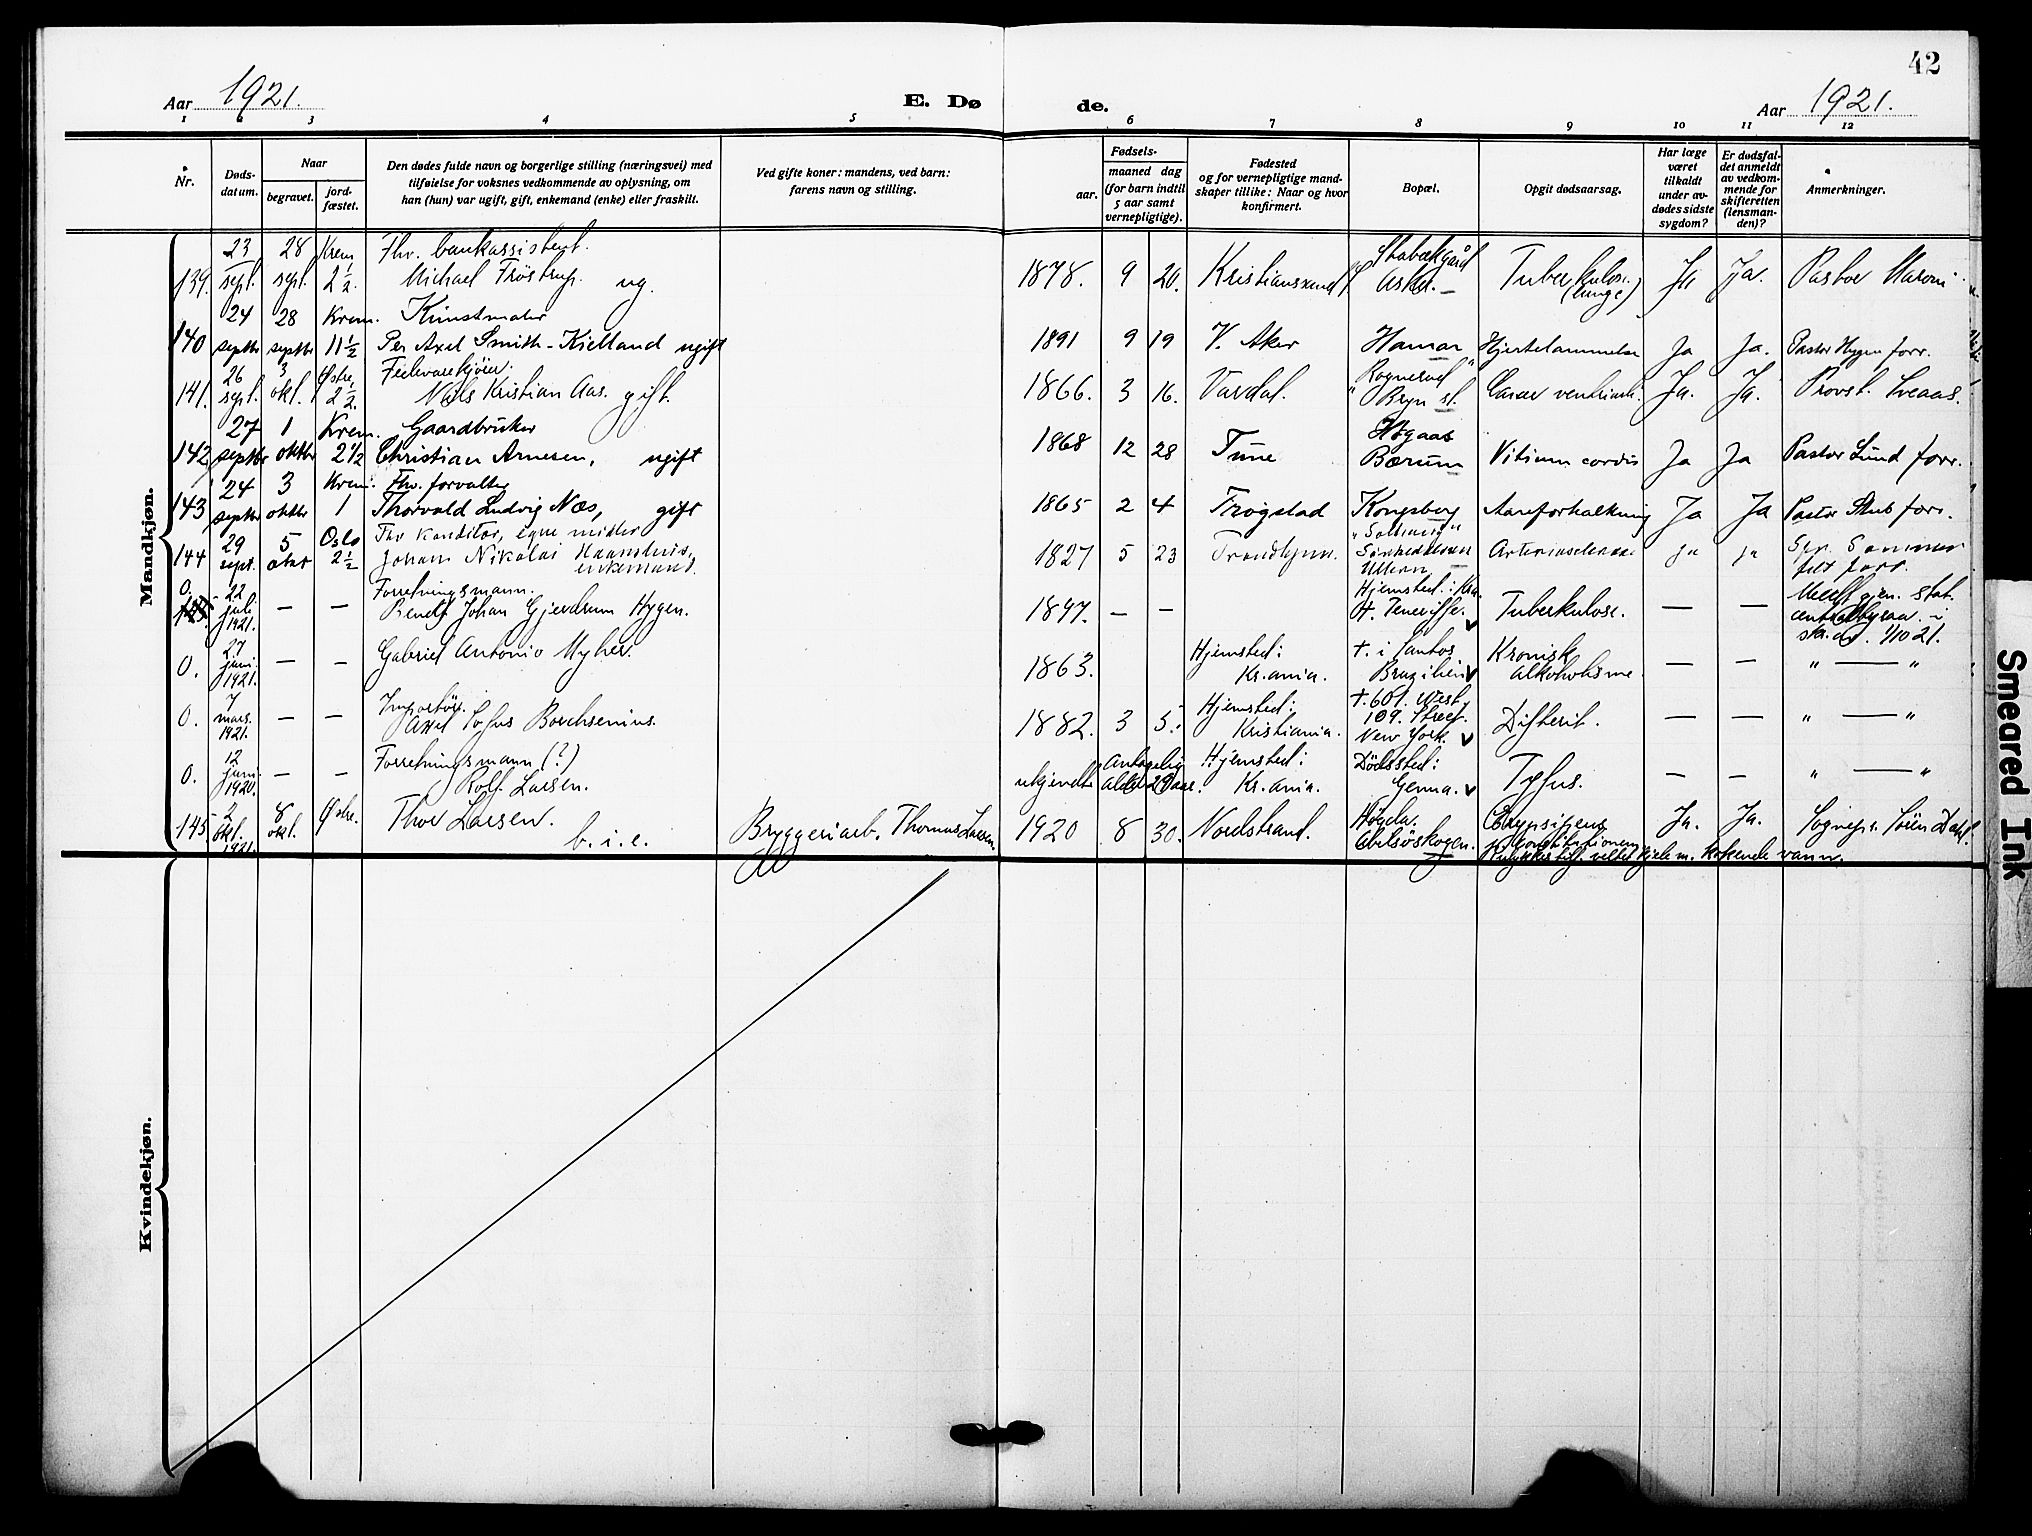 42
Aar 1921.
E. Dø
de.
Aar 1921.
1 2 3 4 5 6 7 8 9 10 11 12
Nr.
Døds-
datum.
Naar
begravet.
jord-
fæstet.
Den dødes fulde navn og borgerlige stilling (næringsvei) med
tilføielse for voksnes vedkommende av oplysning, om
han (hun) var ugift, gift, enkemand (enke) eller fraskilt.
Ved gifte koner: mandens, ved barn:
farens navn og stilling.
Fødsels-
aar.
maaned dag
(for barn indtil
5 aar samt
vernepligtige).
Fødested
og for vernepligtige mand-
skaper tillike: Naar og hvor
konfirmert.
Bopæl.
Opgit dødsaarsag.
Har læge
været
tilkaldt
under av-
dødes sidste
sygdom?
Er dødsfal-
det anmeldt
av vedkom-
mende for
skifteretten
(lensman-
den)?
Anmerkninger.
Mandkjøn.
23 28 Krem Fhv. bankassistent.
139. sept. sept. 2 1/2. Michael Frøstrup. ug. 1878. 9 20. Kristianssund Stabækgård Asker. Tuberkulose. (lunge) Ja Ja. Pastor
24 28 Krem. Kunstmaler
140 septbr septbr 11 1/2 Per Axel Smith-Kielland ugift 1891 9 19 V. Aker Hamar Hjertelammelse Ja Ja. Pastor Hygen forr.
26 3 Østre,
141. sept. okt. 2 1/2. Nils Kristian Aas. gift. 1866. 3 16. Vardal. Bryn st. Cancer ventriculi. Ja. Ja. Provst Sveaas.
27 1 Krem. Gaardbruker
142 septbr oktbr 2 1/2 Christian Arnesen, ugift 1868 12 28 Tune Høgaas Bærum Vitium cordis Ja Ja Pastor Lund forr.
24 3 Krem. Fhv. forvalter
143 septbr oktbr 1 Thorvald Ludvig Næs, gift 1865 2 4 Trøgstad Kongsberg Aareforkalkning Ja Ja Pastor Stub forr.
29 5 Oslo Fhv konditor, egne midler
144 sept. oktbr 2 1/2 Johan Nikolai enkemand. 1827 5 23 Trondhjem. Ullern Arteriosclerose ja ja forr.
0. 22 juli 1921. — — Forretningsmann.
Bendt Johan Gjerdrum Hygen. 1897. — — Hjemsted: Kra. † Teneriffe. Tuberkulose. — — Medt. gjen. stat. centralbyraa i 1/10 21.
0. 27 juni 1921. — — Gabriel Antonio Myhre. 1863. Hjemsted: Kr.ania. †. i Santos Brazilien Kronisk alkoholisme. — — " — "
0. 7 mars. 1921. — — Importør. Axel Sofus Borchsenius. 1882. 3 5. Hjemsted: Kristiania. †. 601. West. 109. Street. New York. Difterit. — — " — "
0. 12 juni 1920. — — Forretningsmann (?) Rolf Larsen. ukjendt Antagelig Hjemsted: Kr.ania. Dödssted: Genua. Tyfus. — — " — "
145. 2 okt. 1921. 8 okt. Østre. Thor Larsen. b. i. e. Bryggeriarb. Thomas Larsen. 1920 8 30. Nordstrand. Høyda. Abelsöskogen. Ja. Ja. Sognepr. Sören Dahl.
kjele m. kokende vann.
Kvindekjøn.
Smeared Ink